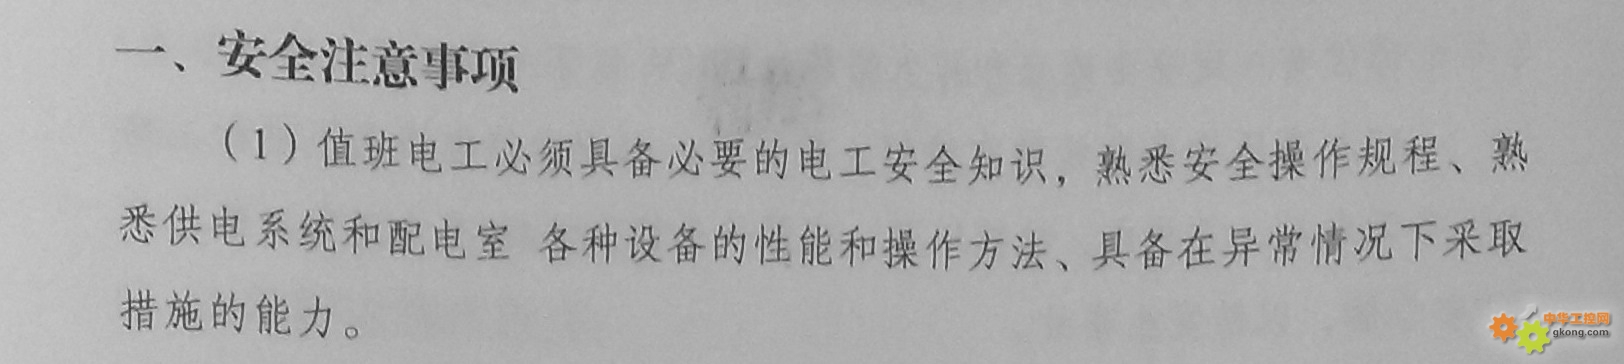 一、安全注意事项
（1）值班电工必须具备必要的电工安全知识，熟悉安全操作规程、熟
悉供电系统和配电室 各种设备的性能和操作方法、具备在异常情况下采取
措施的能力。
中华工控网
gkong.com